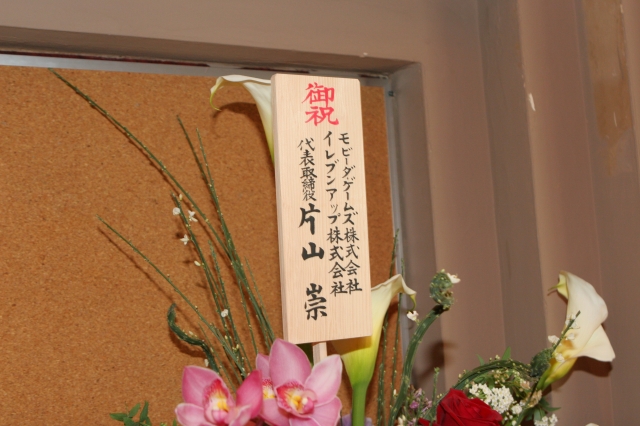 御祝
モビーダゲームズ株式会社
イレブンアップ株式会社
代表取締役 片山 崇